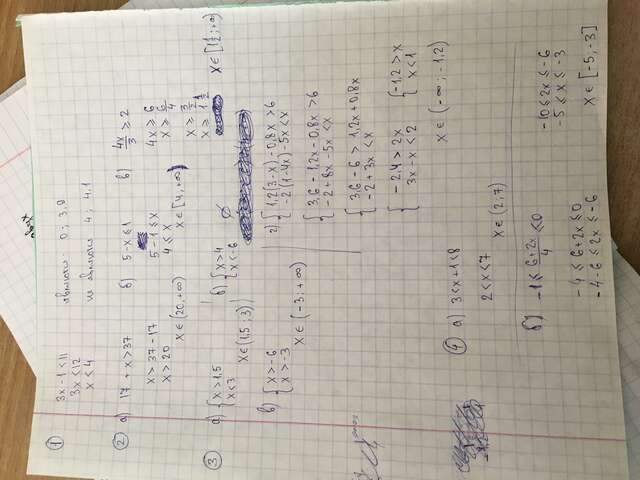 ① 3x - 1 < 11
3x ≤ 12
x ≤ 4
0 ; 3,9
не 4 ; 4.1
② а) 17 - x > 37
x > 37 - 17
x > 20
x ∈ (20, +∞)
б) 5 - x ≤ 1
5 - 1 ≤ x
4 ≤ x
x ∈ [4, +∞)
в) 4x/3 ≥ 2
4x ≥ 6
x ≥ 6/4
x ≥ 3/2
x ≥ 1 1/2
x ∈ [1 1/2 ; +∞)
③ а) { x > 1,5
x < 3
x ∈ (1,5 ; 3)
б) { x > 4
x < -6
∅
в) { x > -6
x > -3
x ∈ (-3 ; +∞)
г) { 1,2(3 - x) - 0,8x > 6
-2(1 - 4x) - 5x < x
{ 3,6 - 1,2x - 0,8x > 6
-2 + 8x - 5x < x
{ 3,6 - 6 > 1,2x + 0,8x
-2 + 3x < x
{ -2,4 > 2x
3x - x < 2
{ -1,2 > x
x < 1
x ∈ (-∞ ; -1,2)
④ а) 3 < x + 1 < 8
2 < x < 7
x ∈ (2, 7)
б) -1 ≤ 6 + 2x/4 ≤ 0
-4 ≤ 6 + 2x ≤ 0
-4 - 6 ≤ 2x ≤ -6
-10 ≤ 2x ≤ -6
-5 ≤ x ≤ -3
x ∈ [-5, -3]